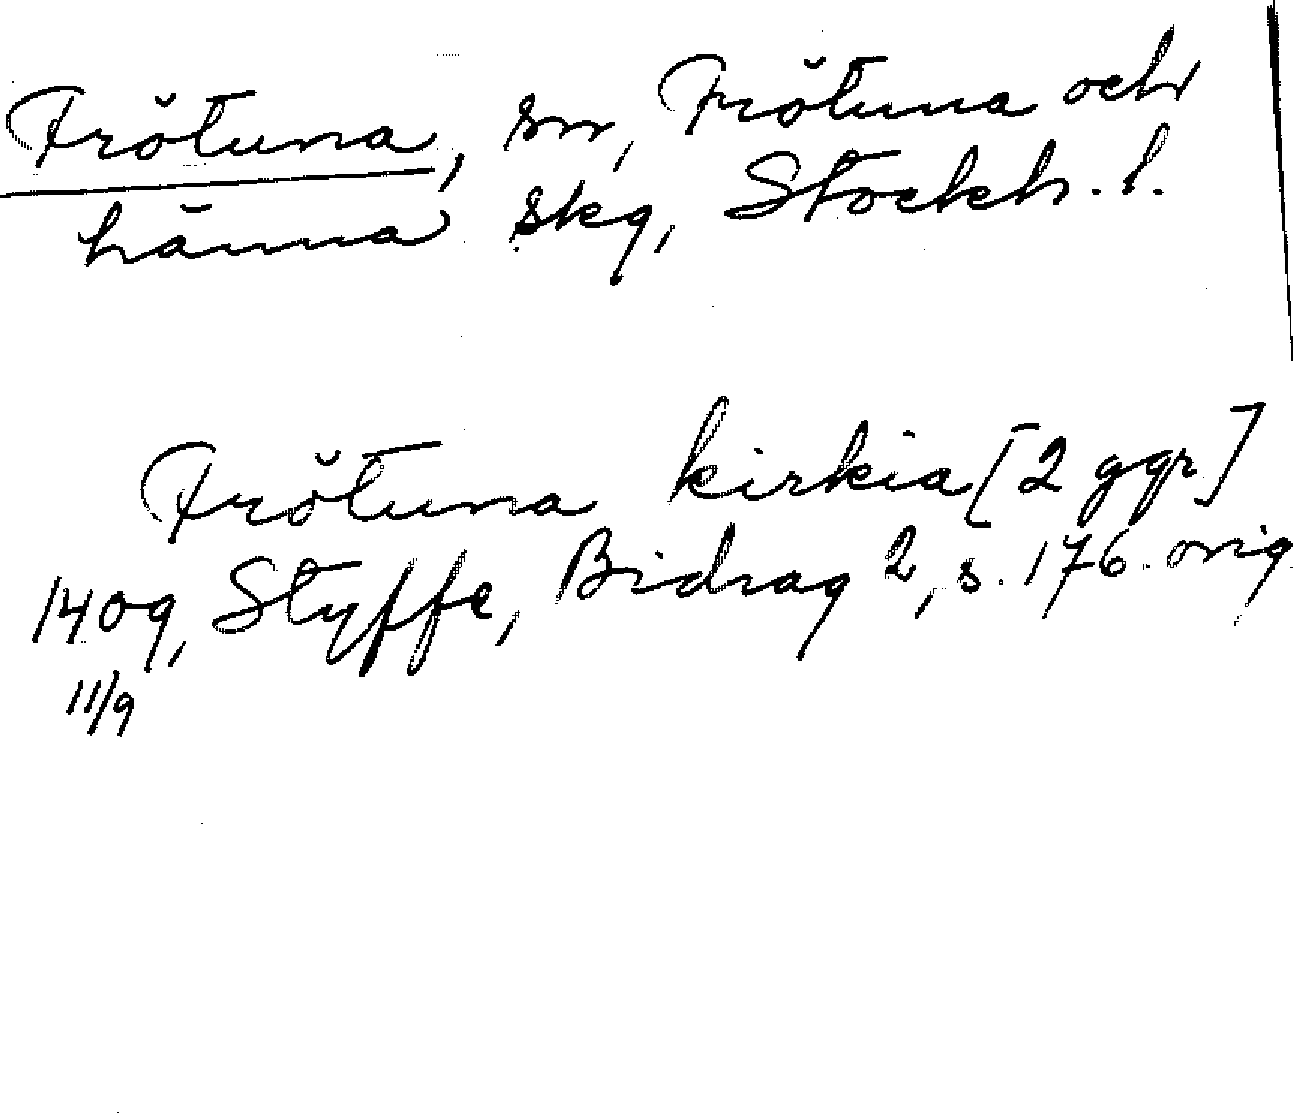 Frötuna, sn, Frötuna och
Länna skg, Stockh. l.
Frötuna kirkia [2 ggr]
1409, Styffe, Bidrag 2, s. 176. orig
11/9